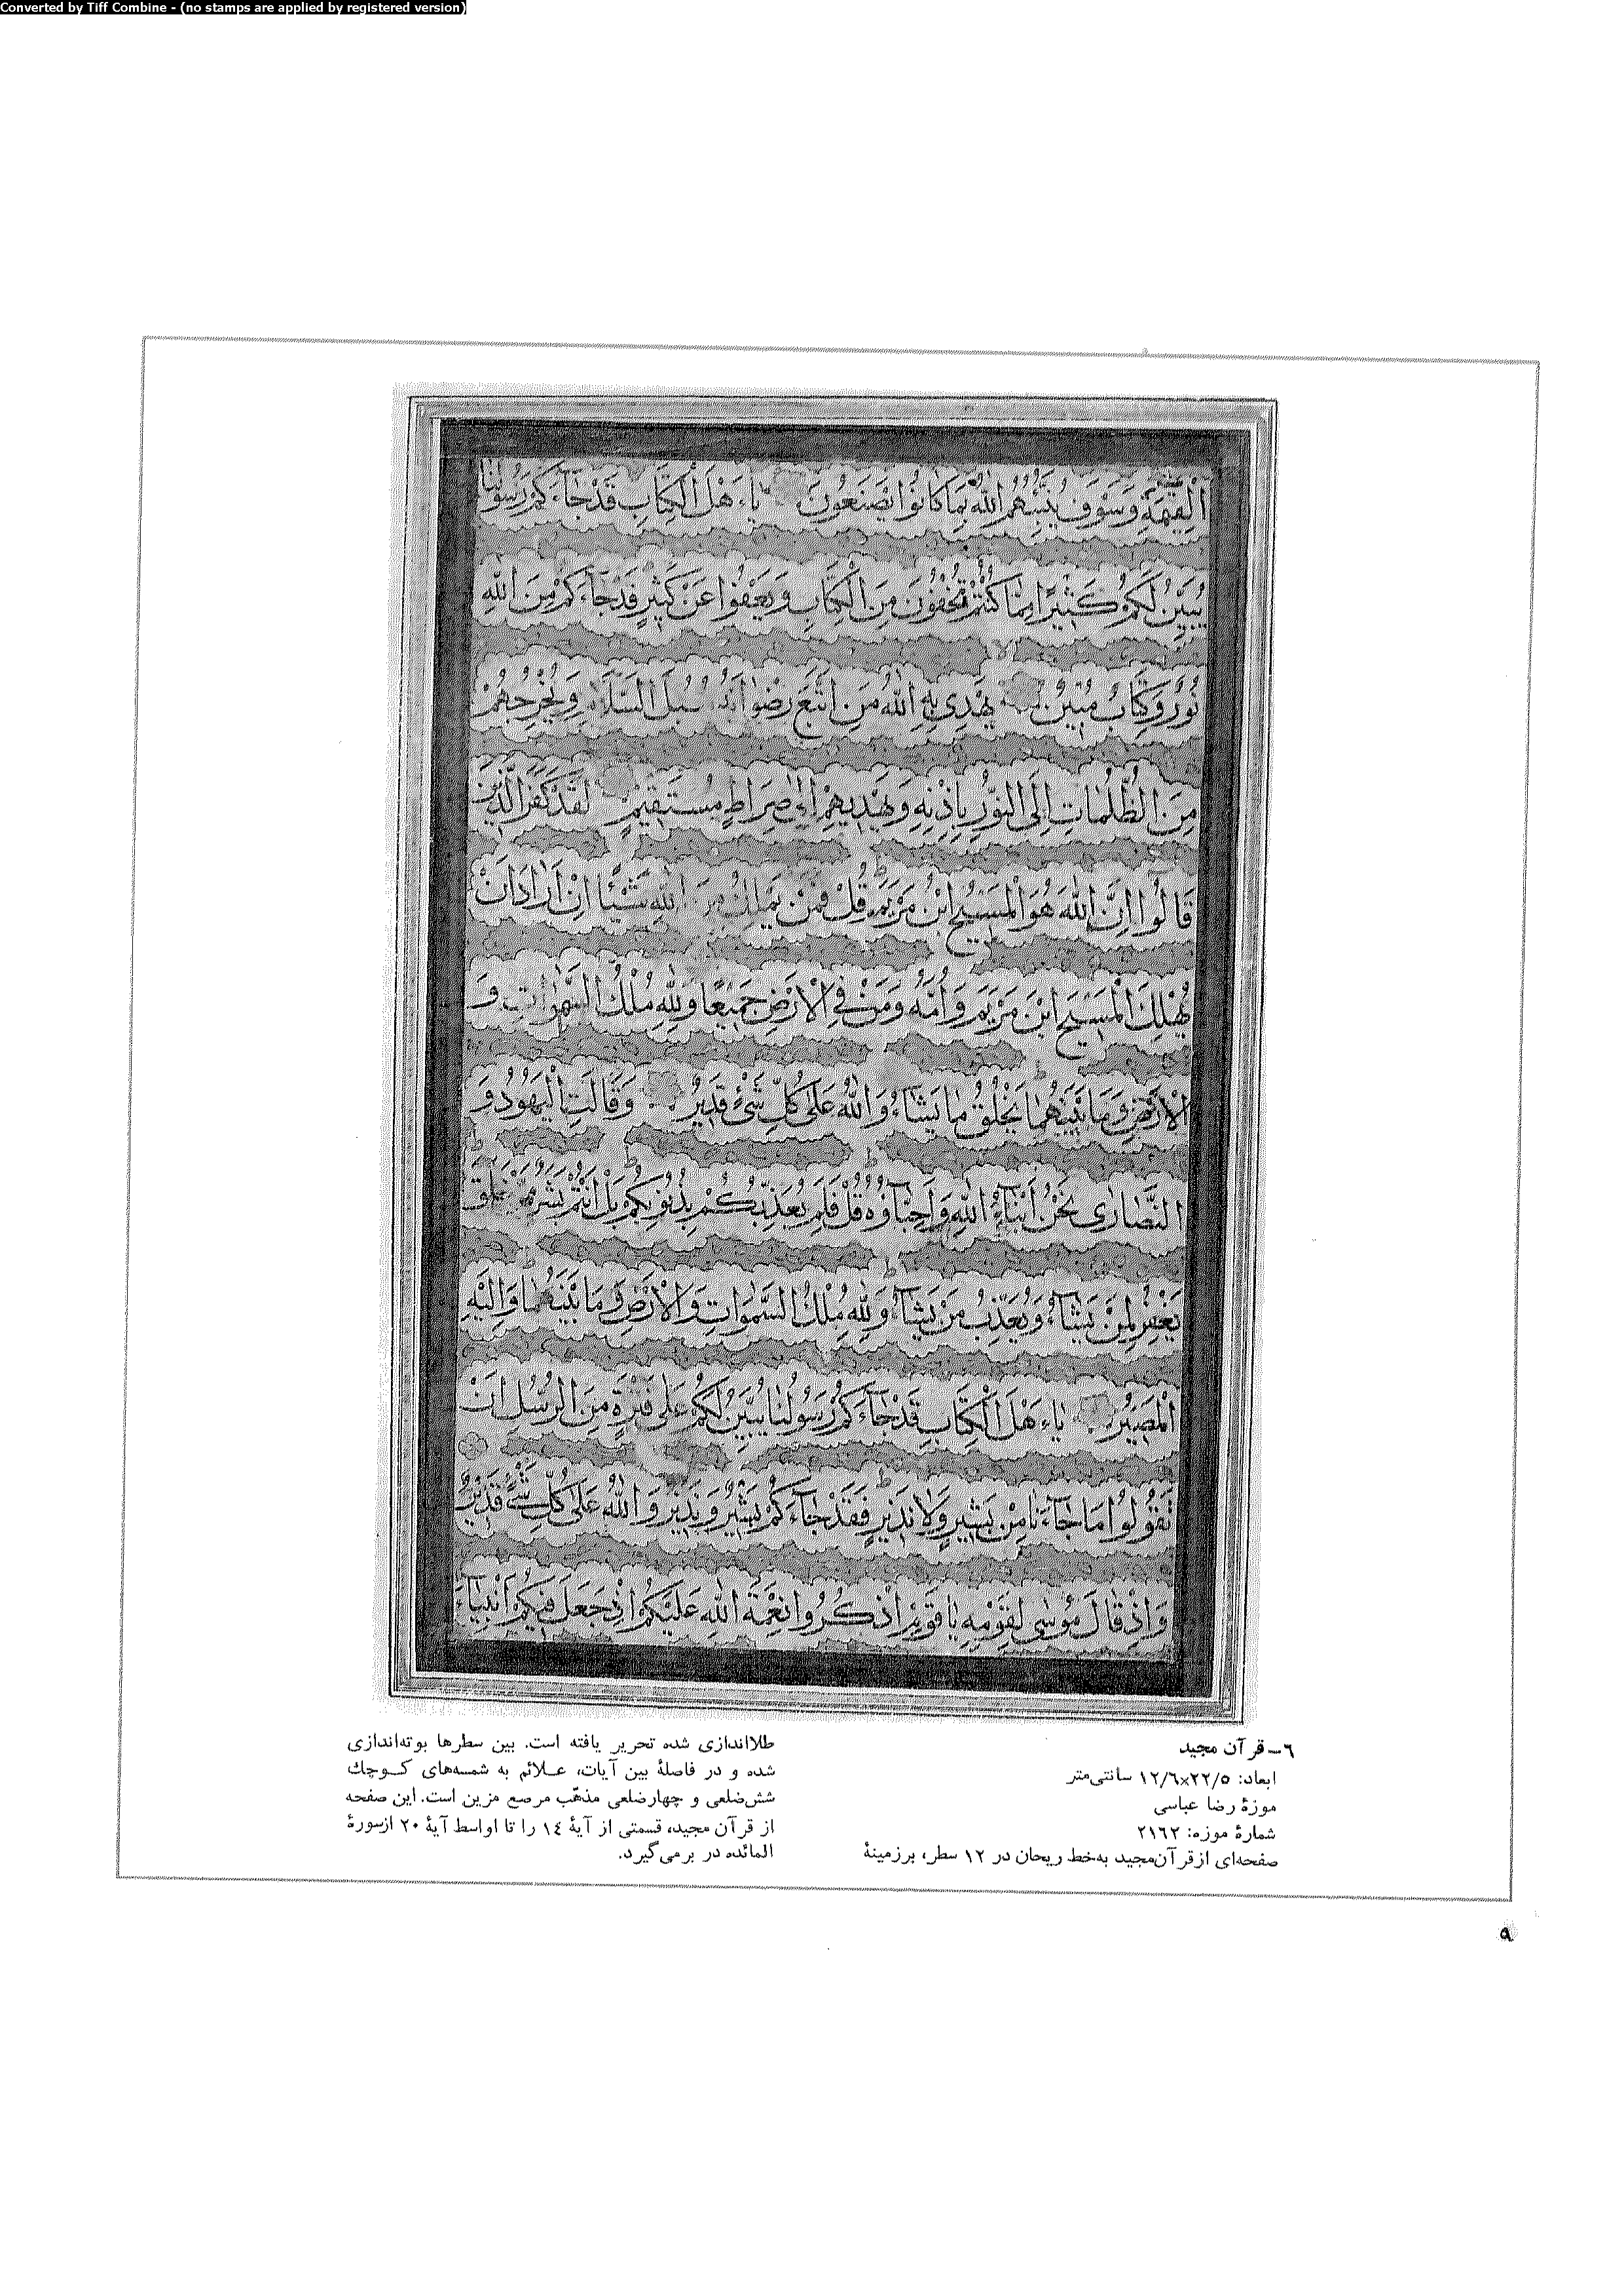 Converted by Tiff Combine - (no stamps are applied by registered version)
الْقِيٰمَةِ وَسَوْفَ يُنَبِّئُهُمُ اللّٰهُ بِمَا كَانُوا يَصْنَعُونَ يَاءَهْلَ الْكِتَابِ قَدْ جَاءَكُمْ رَسُولُنَا
يُبَيِّنُ لَكُمْ كَثِيرًا مِمَّا كُنْتُمْ تُخْفُونَ مِنَ الْكِتَابِ وَيَعْفُوا عَنْ كَثِيرٍ قَدْ جَاءَكُمْ مِنَ اللّٰهِ
نُورٌ وَكِتَابٌ مُبِينٌ يَهْدِي بِهِ اللّٰهُ مَنِ اتَّبَعَ رِضْوَانَهُ سُبُلَ السَّلَامِ وَيُخْرِجُهُمْ
مِنَ الظُّلُمَاتِ اِلَى النُّورِ بِاِذْنِهِ وَيَهْدِيهِمْ اِلٰى صِرَاطٍ مُسْتَقِيمٍ لَقَدْ كَفَرَ الَّذِينَ
قَالُوا اِنَّ اللّٰهَ هُوَ الْمَسِيحُ ابْنُ مَرْيَمَ قُلْ فَمَنْ يَمْلِكُ مِنَ اللّٰهِ شَيْئًا اِنْ اَرَادَ اَنْ
يُهْلِكَ الْمَسِيحَ ابْنَ مَرْيَمَ وَاُمَّهُ وَمَنْ فِي الْاَرْضِ جَمِيعًا وَلِلّٰهِ مُلْكُ السَّمٰوَاتِ وَ
الْاَرْضِ وَمَا بَيْنَهُمَا يَخْلُقُ مَا يَشَاءُ وَاللّٰهُ عَلٰى كُلِّ شَيْءٍ قَدِيرٌ وَقَالَتِ الْيَهُودُ وَ
النَّصَارٰى نَحْنُ اَبْنَاءُ اللّٰهِ وَاَحِبَّاؤُهُ قُلْ فَلِمَ يُعَذِّبُكُمْ بِذُنُوبِكُمْ بَلْ اَنْتُمْ بَشَرٌ مِمَّنْ خَلَقَ
يَغْفِرُ لِمَنْ يَشَاءُ وَيُعَذِّبُ مَنْ يَشَاءُ وَلِلّٰهِ مُلْكُ السَّمٰوَاتِ وَالْاَرْضِ وَمَا بَيْنَهُمَا وَاِلَيْهِ
الْمَصِيرُ يَاءَهْلَ الْكِتَابِ قَدْ جَاءَكُمْ رَسُولُنَا يُبَيِّنُ لَكُمْ عَلٰى فَتْرَةٍ مِنَ الرُّسُلِ اَنْ
تَقُولُوا مَا جَاءَنَا مِنْ بَشِيرٍ وَلَا نَذِيرٍ فَقَدْ جَاءَكُمْ بَشِيرٌ وَنَذِيرٌ وَاللّٰهُ عَلٰى كُلِّ شَيْءٍ قَدِيرٌ
وَاِذْ قَالَ مُوسٰى لِقَوْمِهِ يَا قَوْمِ اذْكُرُوا نِعْمَةَ اللّٰهِ عَلَيْكُمْ اِذْ جَعَلَ فِيكُمْ اَنْبِيَاءَ
٦ــ قرآن مجید
ابعاد: ۱۲/٦×۲۲/٥ سانتی‌متر
موزۀ رضا عباسی
شمارۀ موزه: ۲۱٦۲
صفحه‌ای از قرآن‌مجید به‌خط ریحان در ۱۲ سطر، برزمینۀ
طلااندازی شده تحریر یافته است. بین سطرها بوته‌اندازی
شده و در فاصلۀ بین آیات، عــلائم به شمسه‌های کــوچك
شش‌ضلعی و چهارضلعی مذهّب مرصع مزین است. این صفحه
از قرآن مجید، قسمتی از آیۀ ۱٤ را تا اواسط آیۀ ۲۰ ازسورۀ
المائده در برمی‌گیرد.
۹